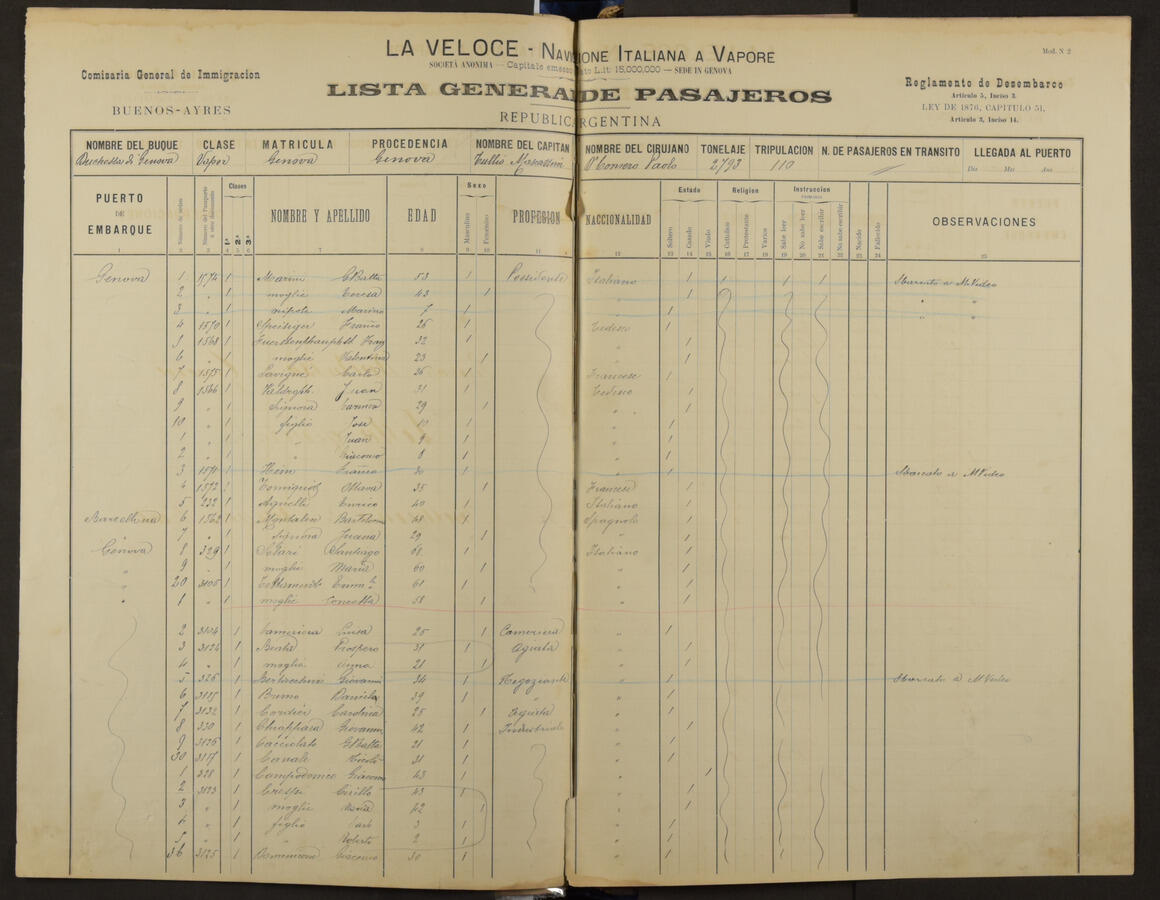 LA VELOCE - NAVI IONE ITALIANA A VAPORE
Mod. N 2
SOCIETÀ ANONIMA — Capitale emesso ato L.it: 15,000,000 — SEDE IN GENOVA
Comisaria General de Immigracion
BUENOS-AYRES
LISTA GENERA DE PASAJEROS
REPUBLIC ARGENTINA
Reglamento de Desembarco
Artículo 5, Inciso 3.
LEY DE 1876, CAPITULO 51,
Artículo 3, Inciso 14.
NOMBRE DEL BUQUE CLASE MATRICULA PROCEDENCIA NOMBRE DEL CAPITAN NOMBRE DEL CIRUJANO TONELAJE TRIPULACION N. DE PASAJEROS EN TRANSITO LLEGADA AL PUERTO
Duchessa di Genova Vapor Genova Genova Tullio 2793 110 Dia Mes Ano
PUERTO DE EMBARQUE Número de orden Clases 1ª 2ª 3ª NOMBRE Y APELLIDO EDAD Sexo Masculino Femenino PROFESION NACCIONALIDAD Estado Soltero Casado Viudo Religion Católico Protestante Varios Instruccion Sabe leer No sabe leer Sabe escribir No sabe escribir Nacido Fallecido OBSERVACIONES
Genova 1 1574 1 Marini GBatta 53 1 Possidente Italiano 1 1 1 1 Sbarcato a MVideo
2 " 1 moglie Teresa 43 1 " 1 "
3 " 1 nipote Marino 7 1 " 1 "
4 1570 1 Franco 26 1 Tedesco 1
5 1568 1 32 1 " 1
6 " 1 moglie Valentina 23 1 " 1
7 1575 1 Lavigne Carlo 26 1 Francese 1
8 1566 1 Juan 31 1 Tedesco 1
9 " 1 Signora 29 1 " 1
10 " 1 figlio Jose 10 1 " 1
1 " 1 " Juan 9 1 " 1
2 " 1 " Giacomo 8 1 " 1
3 1571 1 Hein Franco 30 1 " 1 Sbarcato a MVideo
4 1572 1 Ottava 35 1 Francese 1
5 232 1 Agnelli Enrico 40 1 Italiano 1
Barcellona 6 1562 1 Bartolome 48 1 Spagnolo 1
7 " 1 Signora Juana 29 1 " 1
Genova 8 329 1 Solari Santiago 68 1 Italiano 1
" 9 " 1 moglie Maria 60 1 " 1
" 20 3105 1 61 1 " 1
" 1 " 1 moglie Concetta 58 1 " 1
2 3104 1 Cameriera Luisa 25 1 Cameriera " 1
3 3124 1 Prospero 31 1 Agiata " 1
4 " 1 moglie Anna 21 1 " 1
5 326 1 Giovanni 34 1 Negoziante " 1 Sbarcato a MVideo
6 3115 1 Bruno Daniele 39 1 " " 1
7 3132 1 Cordier Carolina 25 1 Agiata " 1
8 330 1 Chiappara Giovanni 42 1 Industriale " 1
9 3126 1 Cacciolato GBatta 21 1 " 1
30 3117 1 Canale Nicolò 31 1 " 1
1 328 1 Campodonico Giacomo 43 1 " 1
2 3123 1 Crespi Cirillo 43 1 " 1
3 " 1 moglie Maria 42 1 " 1
4 " 1 figlio Carlo 3 1 " 1
5 " 1 " Roberto 2 1 " 1
36 3125 1 Giacomo 30 1 " 1